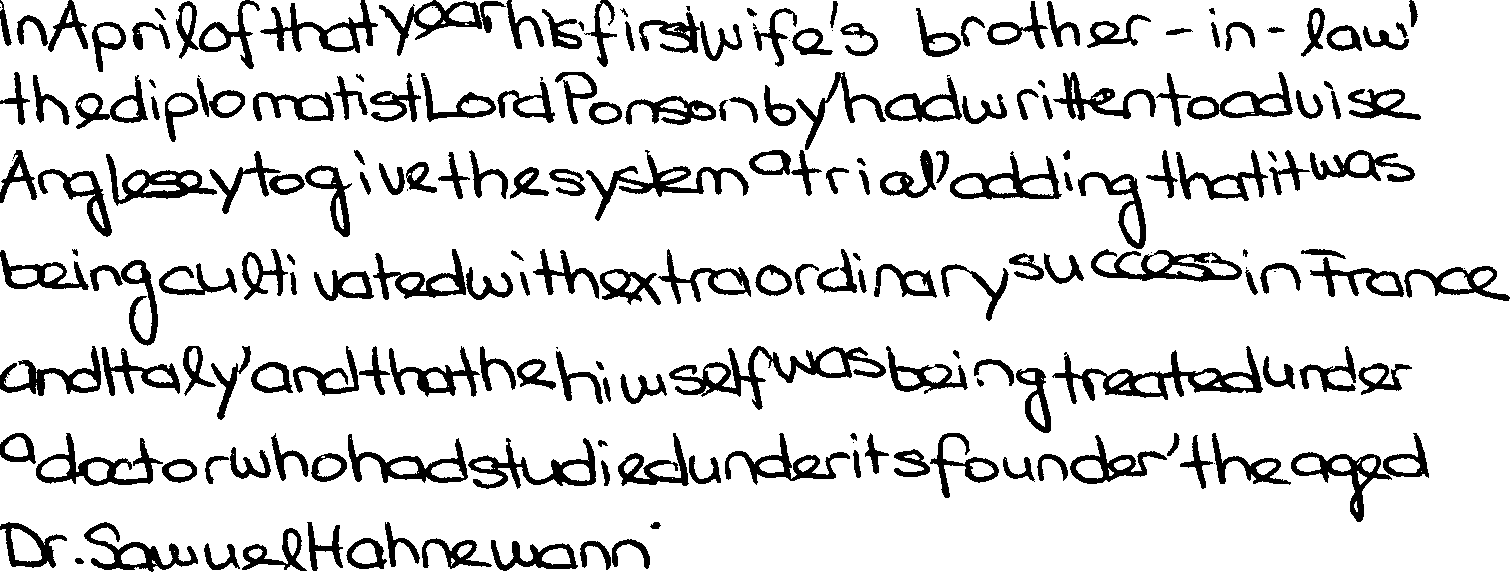 In April of that year his first wife's brother-in-law'
the diplomatist Lord Ponsonby' had written to advise
Anglesey to give the system a trial' adding that it was
being cultivated with extraordinary success in France
and Italy' and that he himself was being treated under
a doctor who had studied under its founder' the aged
Dr. Samuel Hahnemann.